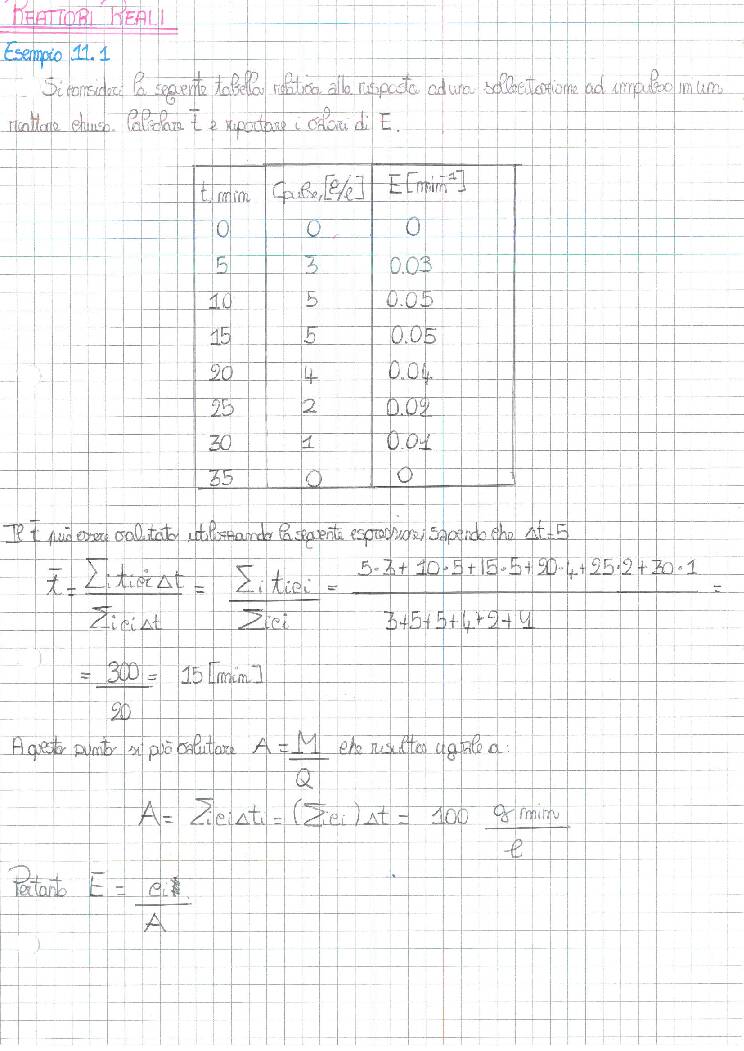 REATTORI REALI
Esempio 11.1
Si consideri la seguente tabella relativa alla risposta ad una sollecitazione ad impulso in un
reattore chiuso. Calcolare t̄ e riportare i valori di E.
t, min Cpulse, [g/l] E [min⁻¹]
0 0 0
5 3 0.03
10 5 0.05
15 5 0.05
20 4 0.04
25 2 0.02
30 1 0.01
35 0 0
Il t̄ può essere valutato utilizzando la seguente espressione, sapendo che Δt=5
t̄ = Σi ti ci Δt / Σi ci Δt = Σi ti ci / Σi ci = 5·3+10·5+15·5+20·4+25·2+30·1 / 3+5+5+4+2+1 =
= 300 / 20 = 15 [min]
A questo punto si può valutare A = M / Q che risulta uguale a:
A = Σi ci Δti = (Σi ci) Δt = 100 g min / l
Pertanto E = ci / A